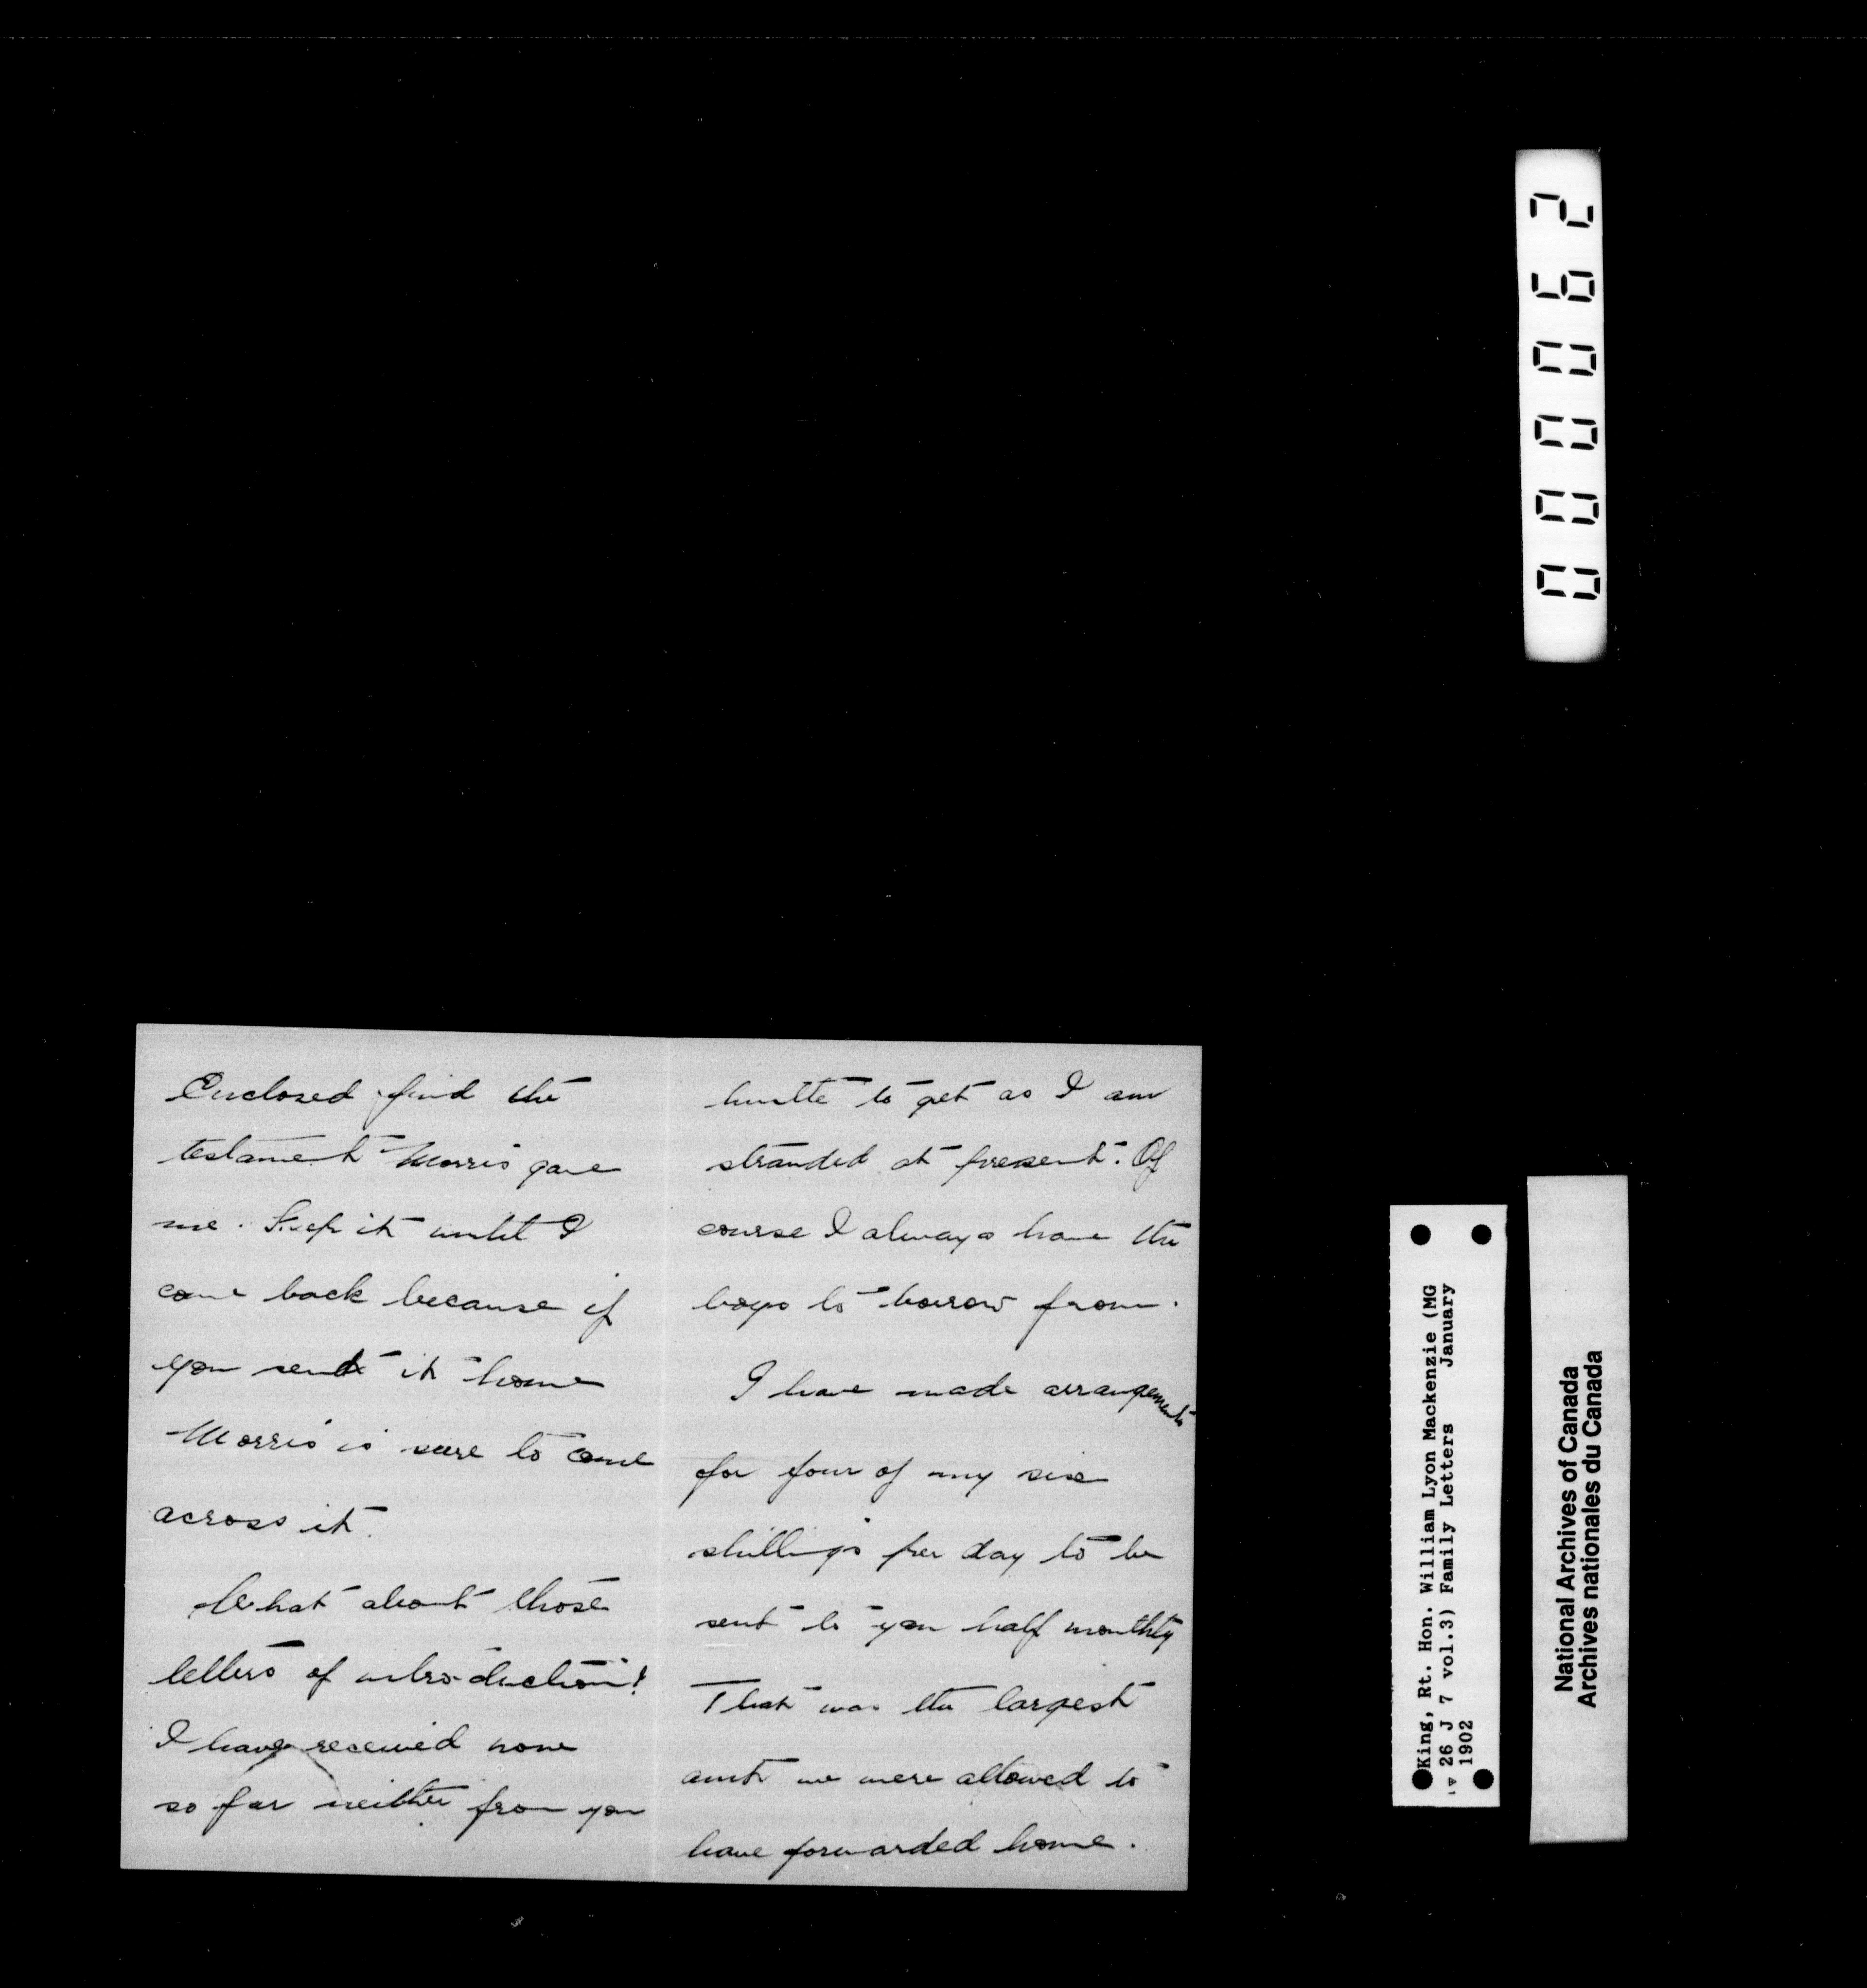 Enclosed find the
testament Morris gave
me. Keep it until I
come back because if
you send it home
Morris is sure to come
across it.
What about those
letters of introduction?
I have received none
so far neither from you
to get as I am
stranded at present. Of
course I always have the
boys to borrow from.
I have made arrangements
for four of my six
shillings per day to be
sent to you half monthly
That was the largest
amt we were allowed to
have forwarded home.
000062
King, Rt. Hon. William Lyon Mackenzie (MG
26 J 7 vol.3) Family Letters January
1902
National Archives of Canada
Archives nationales du Canada